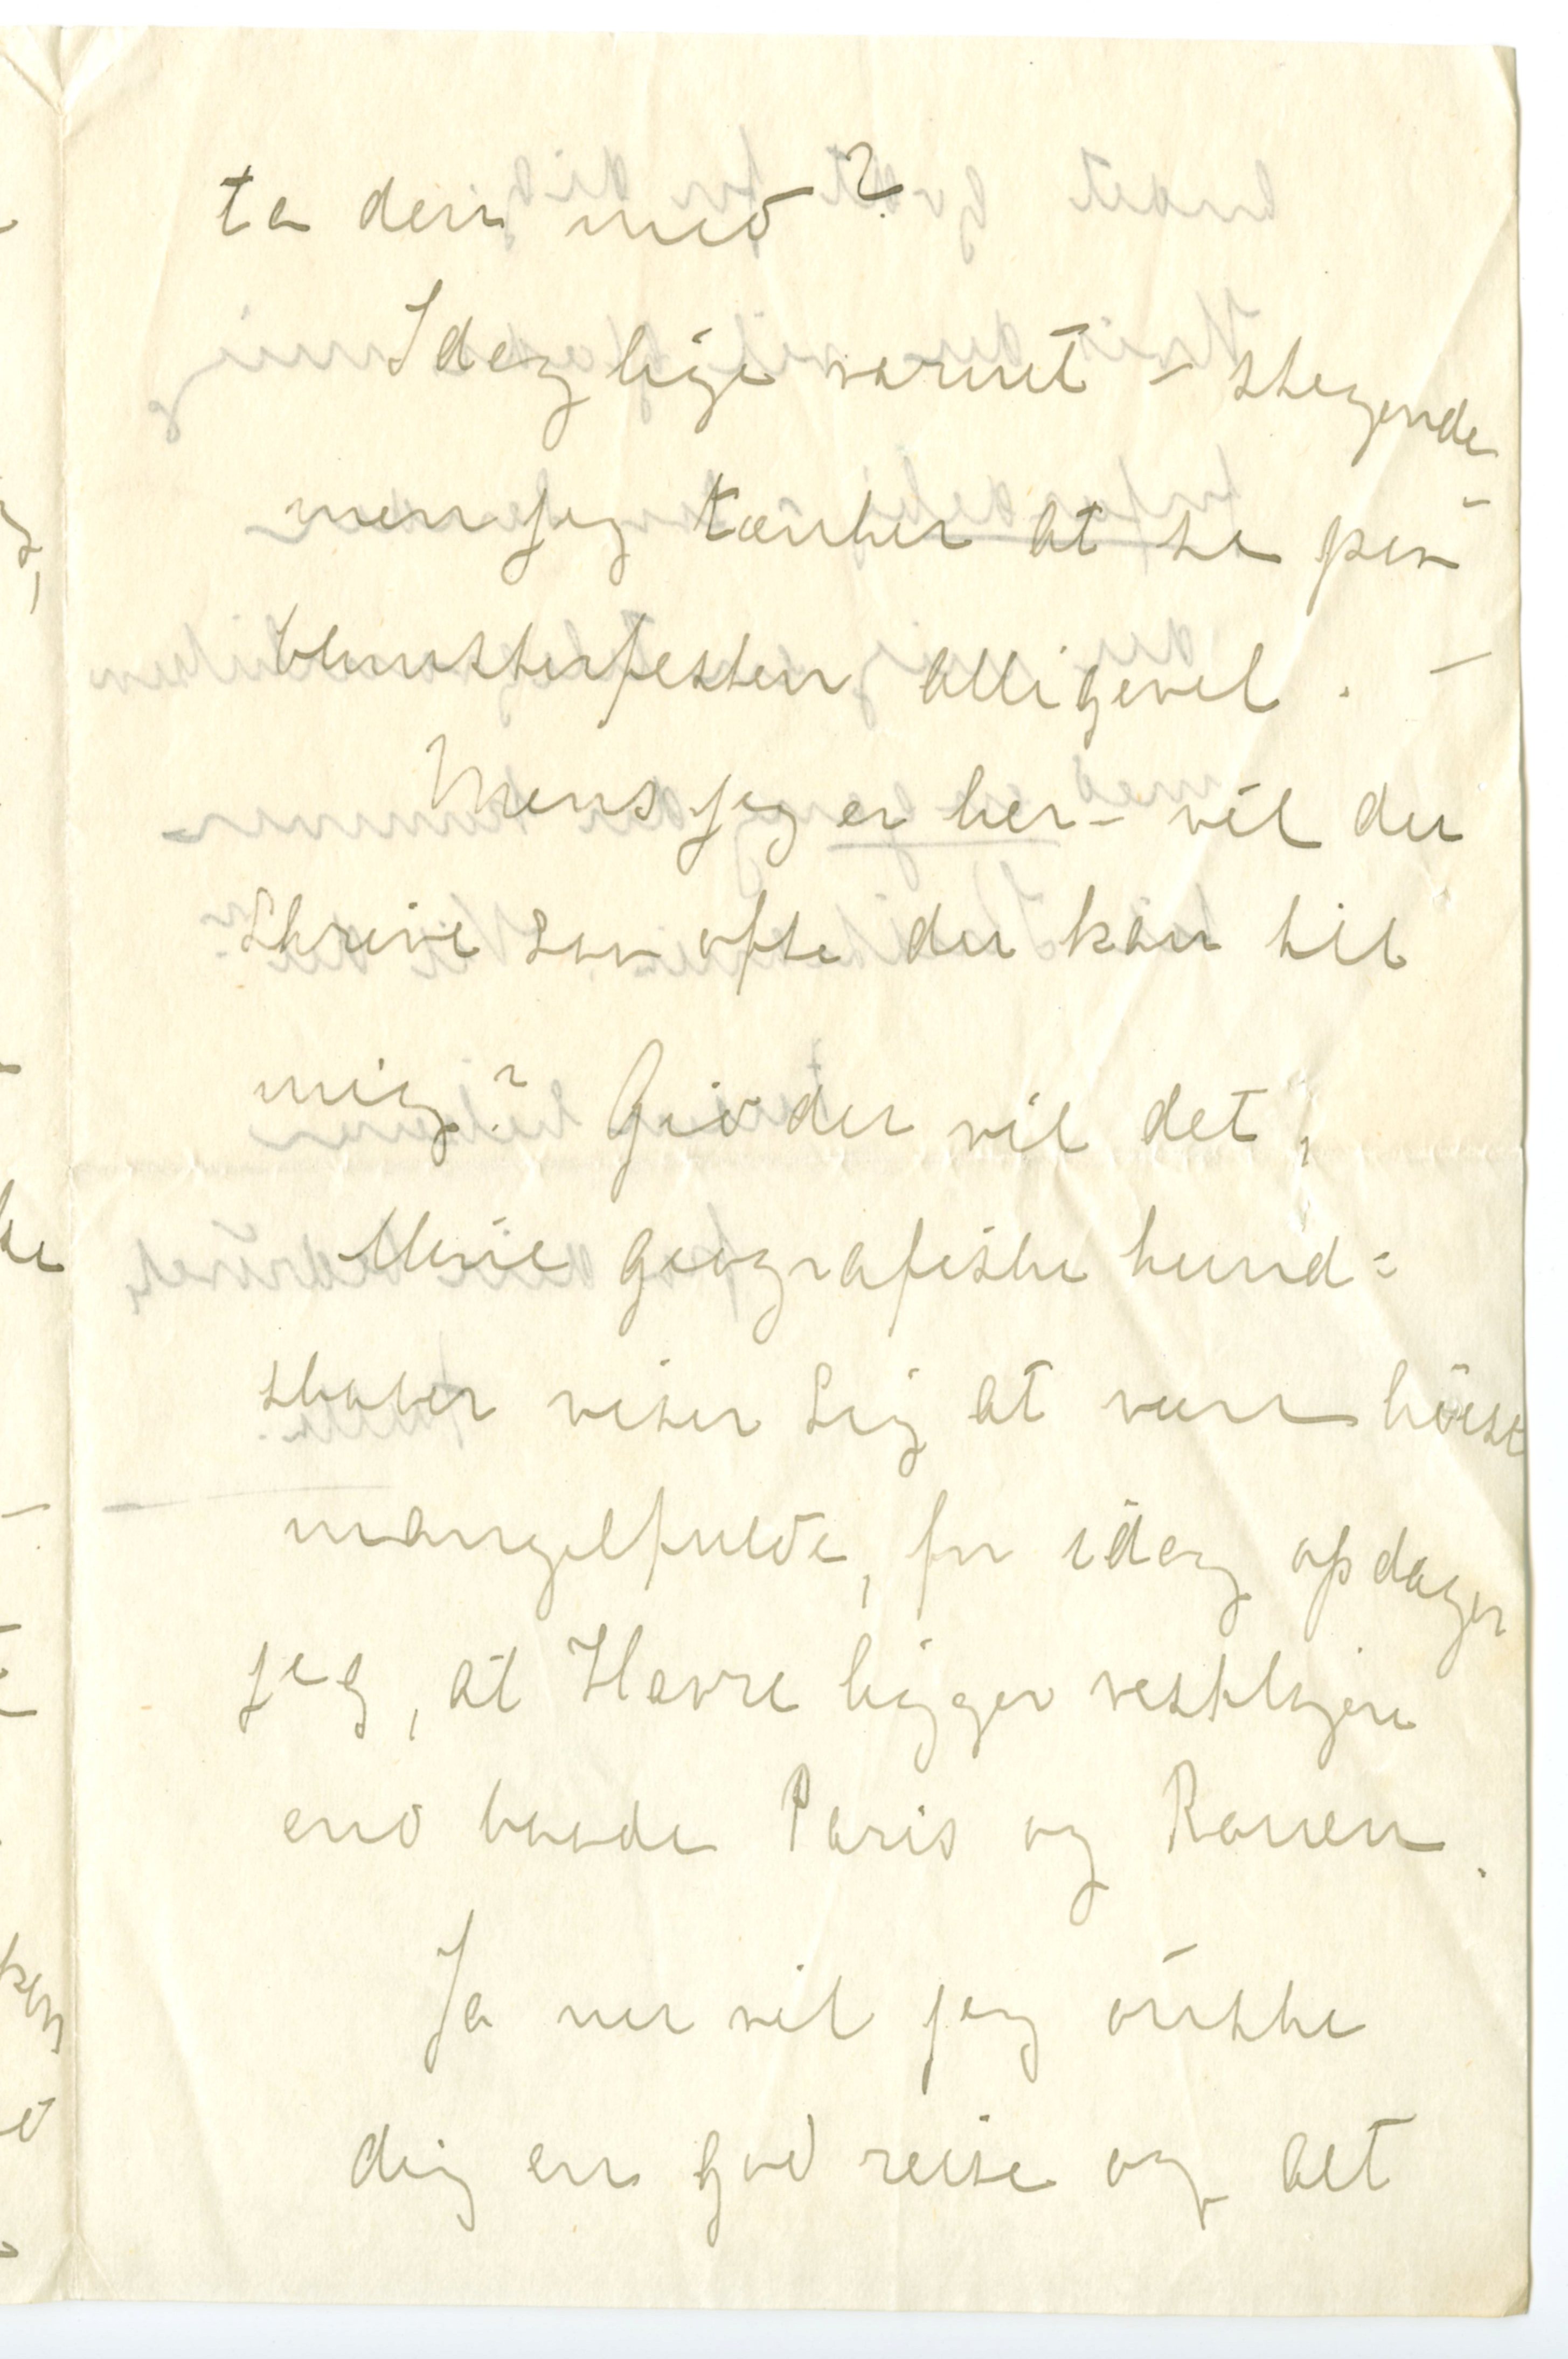 ta den med?
Idag lige varmt – stegende –
men jeg tænker at se paa
blomsterfesten alligevel. –
Mens jeg er her – vil du
skrive saa ofte du kan til
mig? Giv du vil det,
Mine geografiske kund=
skaber viser sig at være høist
mangelfulde, for idag opdager
jeg, at Havre ligger vestligere
end baade Paris og Rouen.
Ja nu vil jeg ønske
dig en god reise og alt